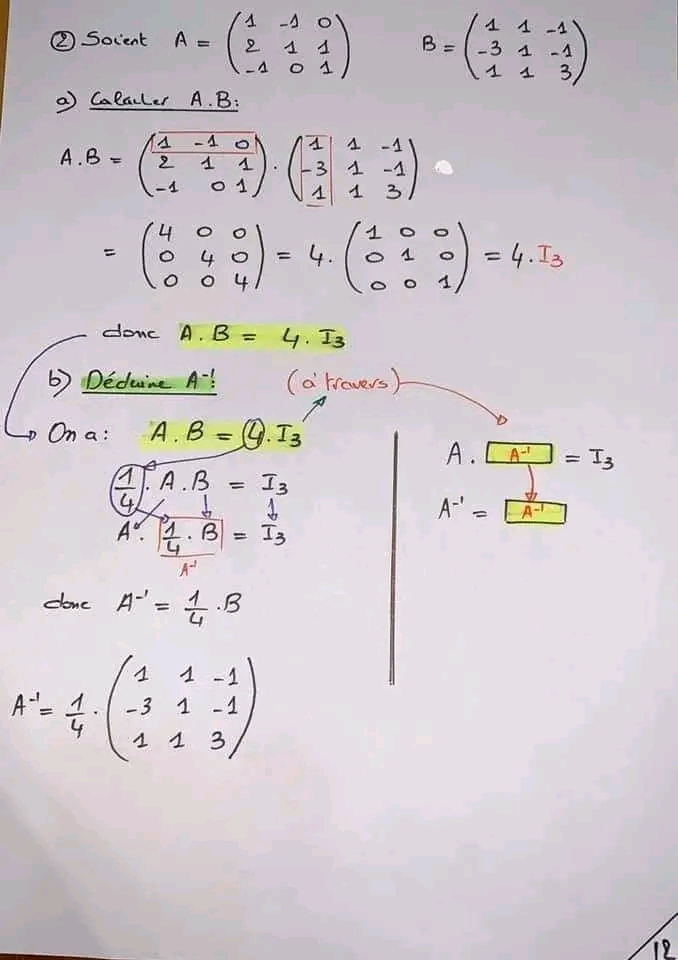 ② Soient A = ( 1 -1 0 ; 2 1 1 ; -1 0 1 ) B = ( 1 1 -1 ; -3 1 -1 ; 1 1 3 )
a) Calculer A.B:
A.B = ( 1 -1 0 ; 2 1 1 ; -1 0 1 ) . ( 1 1 -1 ; -3 1 -1 ; 1 1 3 )
= ( 4 0 0 ; 0 4 0 ; 0 0 4 ) = 4. ( 1 0 0 ; 0 1 0 ; 0 0 1 ) = 4.I₃
donc A.B = 4.I₃
b) Déduire A⁻¹: (à travers)
On a: A.B = 4.I₃
1/4 . A.B = I₃
A. 1/4 . B = I₃
A⁻¹
donc A⁻¹ = 1/4 .B
A⁻¹ = 1/4 . ( 1 1 -1 ; -3 1 -1 ; 1 1 3 )
A. A⁻¹ = I₃
A⁻¹ = A⁻¹
12